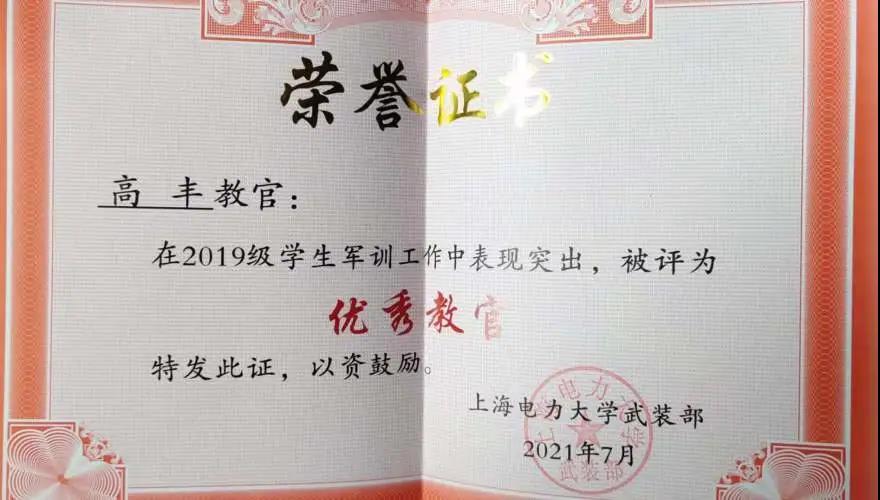 荣誉证书
高 丰教官：
在2019级学生军训工作中表现突出，被评为
优秀教官
特发此证，以资鼓励。
上海电力大学武装部
2021年7月
上海电力大学
武装部